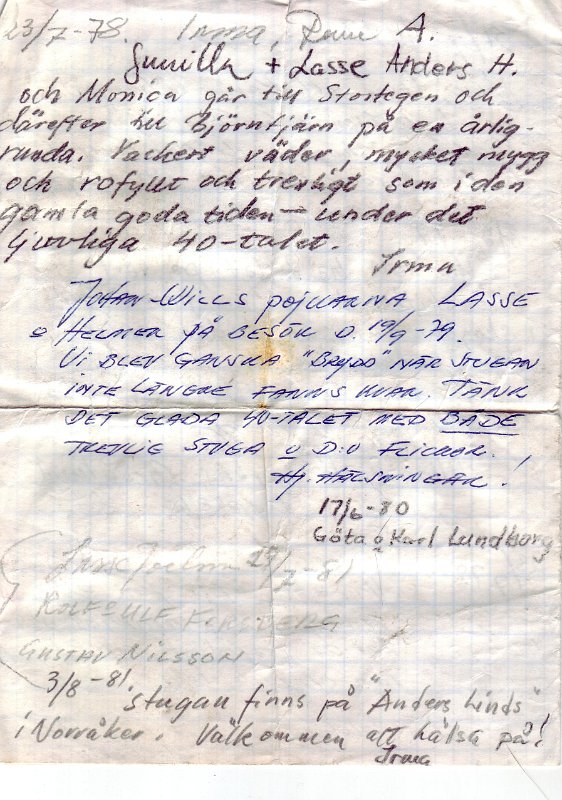 23/7-78. Irma, Rune A.
Gunilla + Lasse Anders H.
och Monica går till Storstegen och
därefter till Björntjärn på en årlig-
runda. Vackert väder, mycket mygg
och rofyllt och trevligt som i den
gamla goda tiden – under det
ljuvliga 40-talet.
Irma
Johan-Wills pojkarna Lasse
o Helmer på besök d. 19/9-79.
Vi blev ganska "brydd" när stugan
inte längre fanns kvar. Tänk
det glada 40-talet med både
trevlig stuga o d:o flickor.
Hj. Hälsningar!
17/6-80
Göta o Karl Lundborg
23/7-81
Rolf Forsberg
Gustav Nilsson
3/8-81. Stugan finns på "Anders Linds"
i Norråker. Välkommen att hälsa på!
Irma